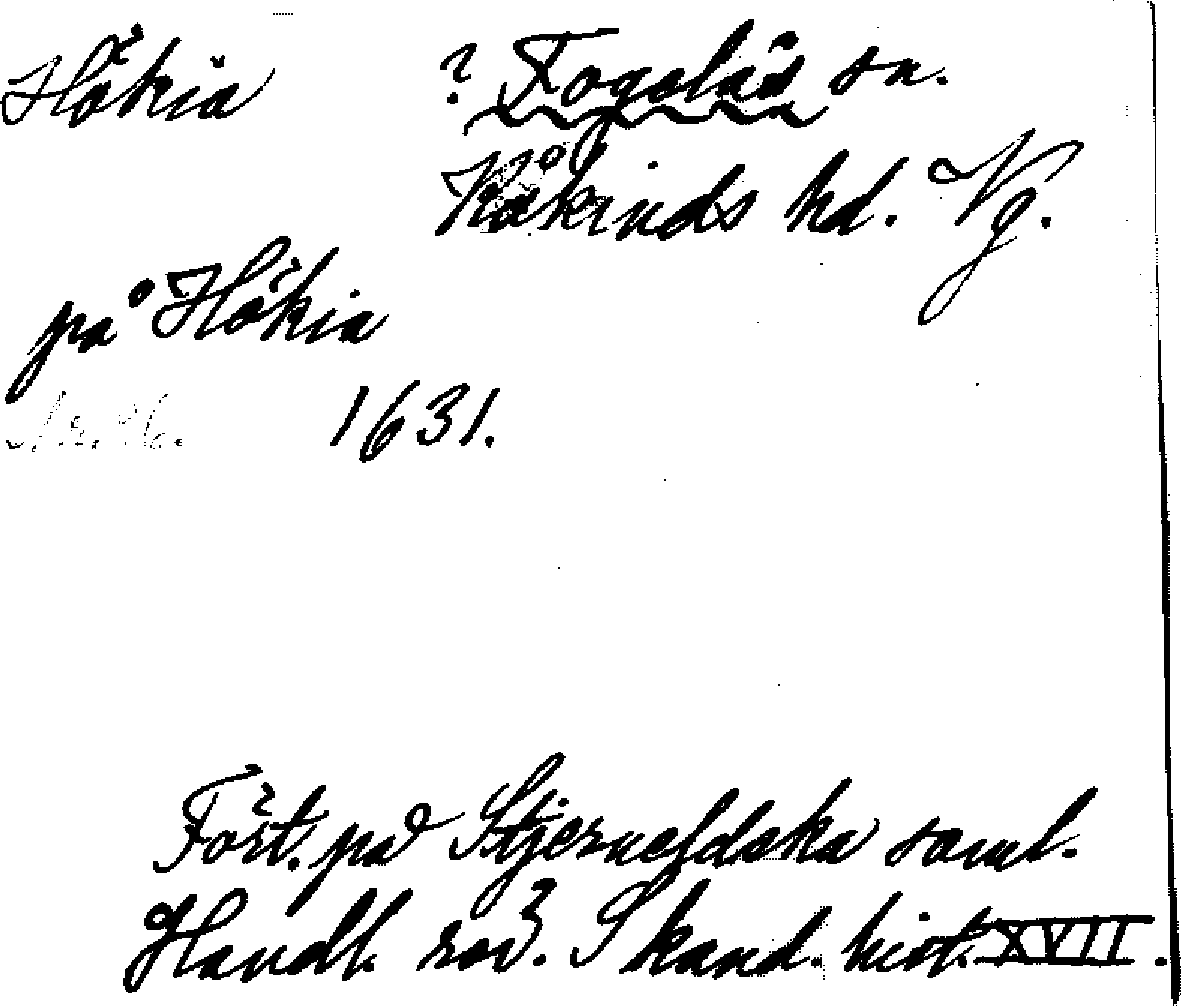 Hökiä ? Fogelås sn.
Kåkinds hd. Vg.
på Hökia
1631.
Fört. på Stjerneldska saml.
Handl. rör. Skand. hist. XVII.